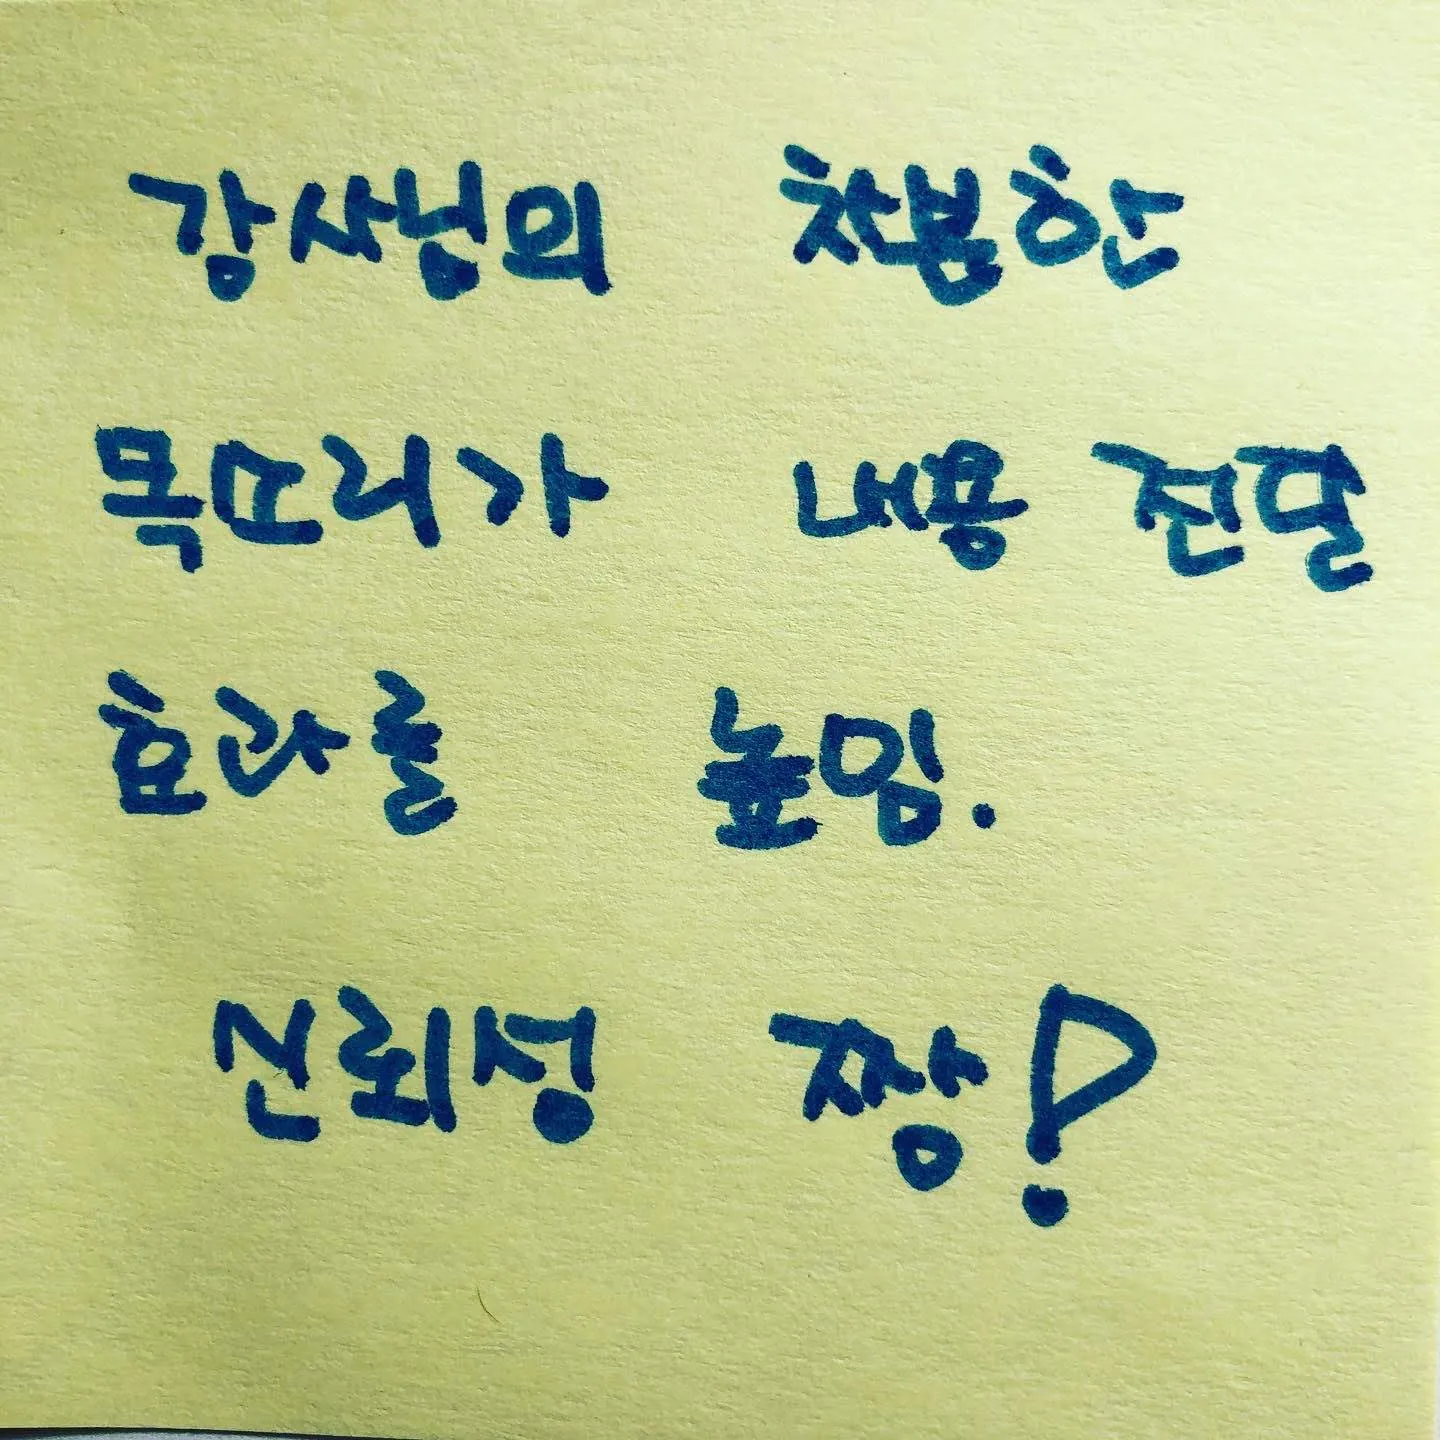 강사님의 차분한
목소리가 내용 전달
효과를 높임.
신뢰성 짱!